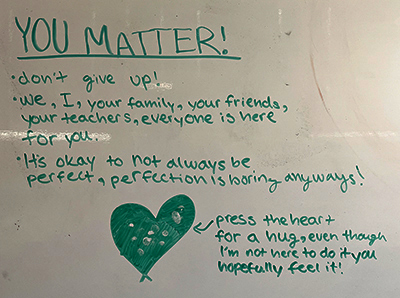 YOU MATTER!
• don't give up!
• We, I, your family, your friends,
your teachers, everyone is here
for you.
• It's okay to not always be
perfect, perfection is boring anyways!
press the heart
for a hug, even though
I'm not here to do it you
hopefully feel it!